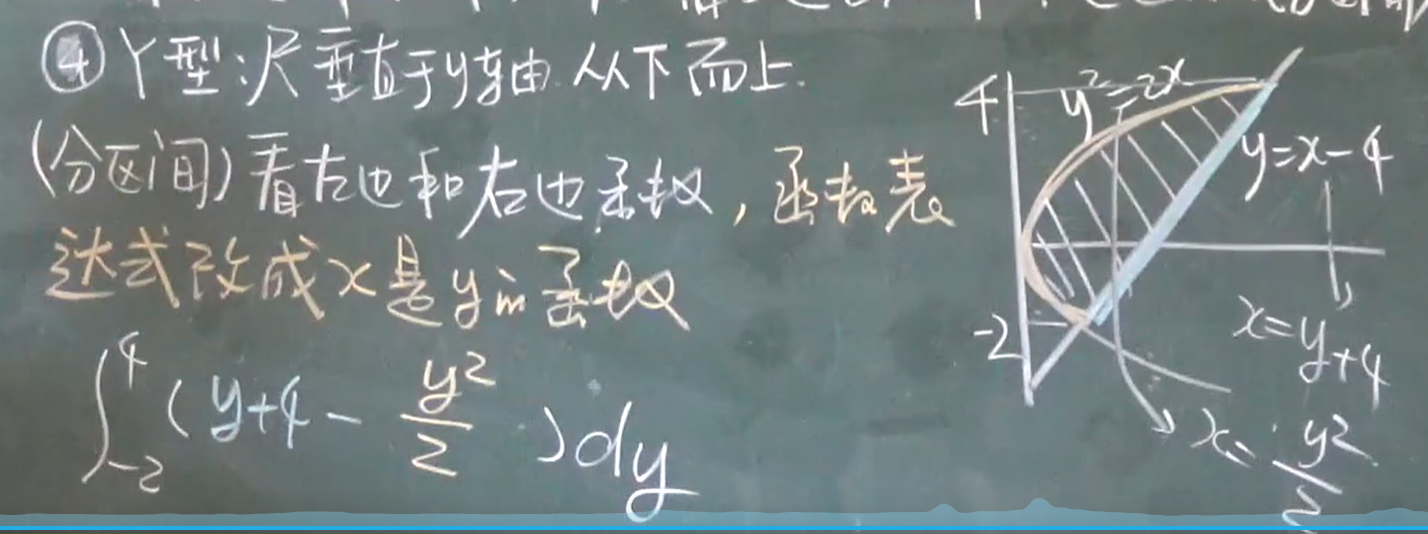 ④Y型:尺垂直于y轴 从下而上.
(分区间)看左边和右边函数,函数表
达式改成x是y的函数
∫₋₂⁴(y+4-y²/2)dy
4
y²=2x
y=x-4
-2
x=y+4
x=y²/2